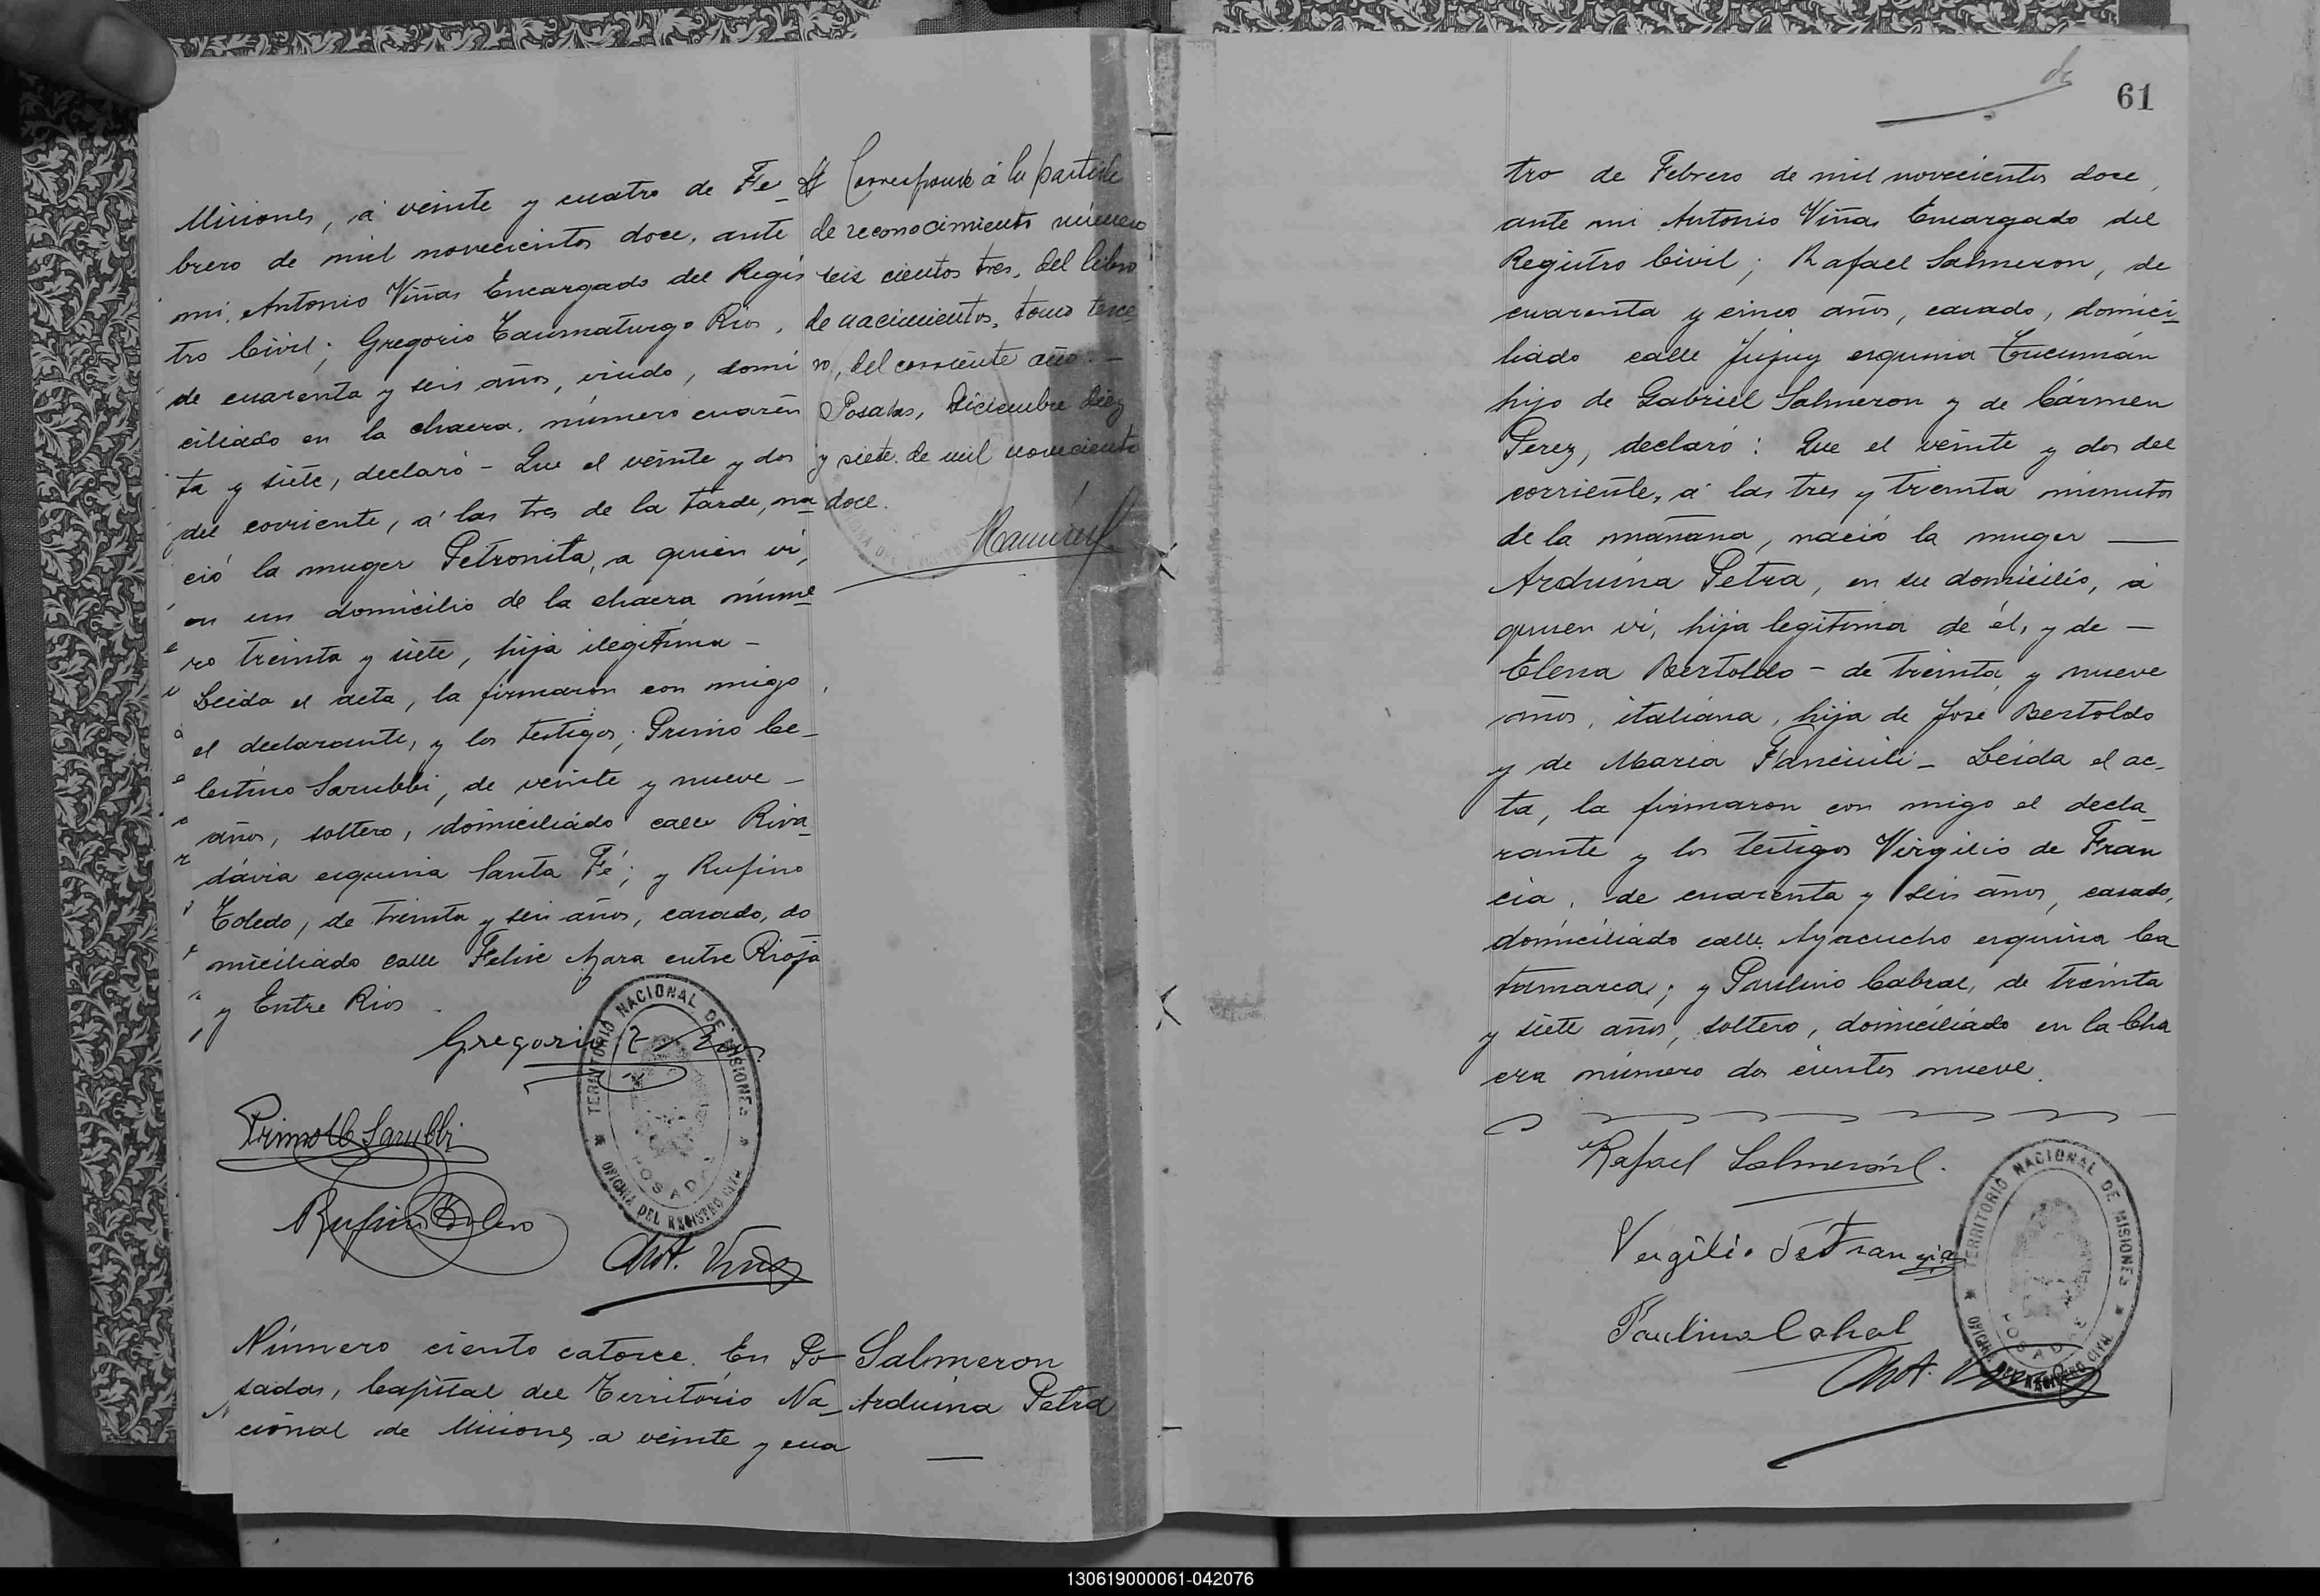 Misiones, á veinte y cuatro de Fe-
brero de mil novecientos doce, ante
mi, Antonio Viñas Encargado del Regis
tro Civil; Gregorio Taumaturgo Rios,
de cuarenta y seis años, viudo, domi
ciliado en la chacra, número cuaren
ta y siete, declaró - Que el veinte y dos
del corriente, á las tres de la tarde, na-
ció la muger Petronita, a quien vi,
en un domicilio de la chacra núme-
ro treinta y siete, hija ilegitima -
Leida el acta, la firmaron con migo
el declarante, y los testigos; Primo Ce-
lestino Sarubbi, de veinte y nueve -
años, soltero, domiciliado calle Riva-
dávia esquina Santa Fé; y Rufino
Toledo, de treinta y seis años, casado, do
miciliado calle Felix Azara entre Rioja
y Entre Rios
Corresponde á la partida
de reconocimiento número
seis cientos tres, del libro
de nacimientos, tomo terce
ro, del corriente año. -
Posadas, Diciembre diez
y siete de mil novecientos
doce.
Ramírez
Gregorio T. Rios
TERRITORIO NACIONAL DE MISIONES
POSADAS
OFICINA DEL REGISTRO CIVIL
Primo C Sarubbi
Rufino Toledo
Ant. Viñas
Número ciento catorce. En Po-
sadas, Capital del Território Na-
cional de Misiones a veinte y cua
Salmeron
Arduina Petra
61
tro de Febrero de mil novecientos doce,
ante mi Antonio Viñas Encargado del
Registro Civil; Rafael Salmeron, de
cuarenta y cinco años, casado, domici-
liado calle Jujuy esquina Tucumán
hijo de Gabriel Salmeron y de Cármen
Perez, declaró: Que el veinte y dos del
corriente, á las tres y treinta minutos
de la mañana, nació la muger —
Arduina Petra, en su domicilio, á
quien vi, hija legitima de él, y de —
Elena Bertoldo - de treinta y nueve
años, italiana, hija de José Bertoldo
y de Maria Fanciuli - Leida el ac-
ta, la firmaron con migo el decla-
rante y los testigos Virgilio de Fran
cia, de cuarenta y seis años, casado,
domiciliado calle Ayacucho esquina Ca
tamarca; y Paulino Cabral, de treinta
y siete años, soltero, domiciliado en la Cha
cra número dos cientos nueve.
Rafael Salmerón
Vergilio De Francia
Paulino Cabral
TERRITORIO NACIONAL DE MISIONES
POSADAS
OFICINA DEL REGISTRO CIVIL
Ant. Viñas
130619000061-042076